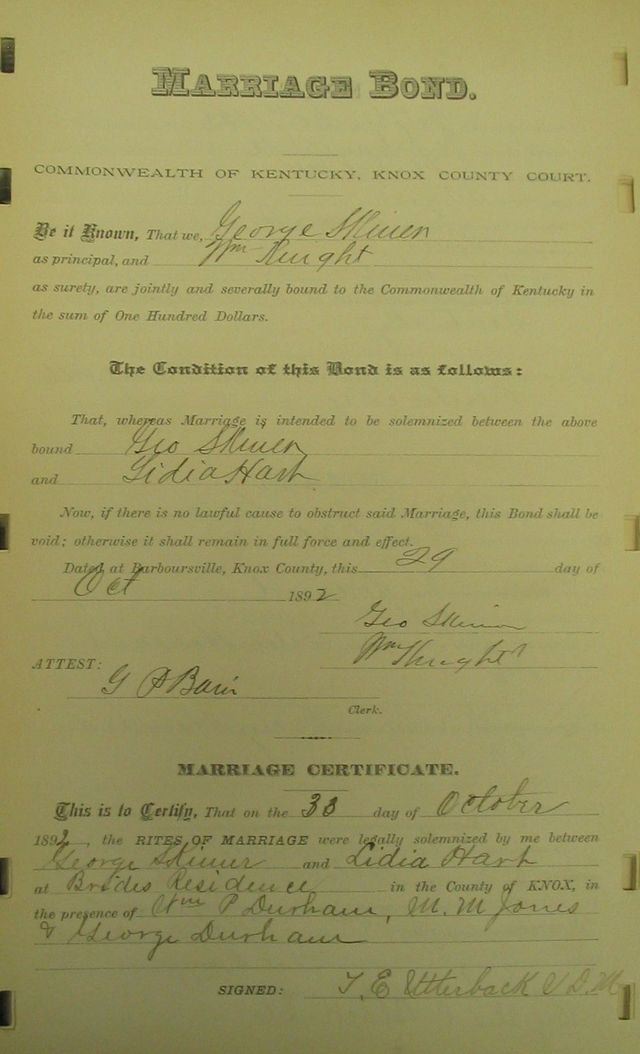 MARRIAGE BOND.
COMMONWEALTH OF KENTUCKY, KNOX COUNTY COURT.
Be it Known, That we, George Skiner
as principal, and Wm Knight
as surety, are jointly and severally bound to the Commonwealth of Kentucky in
the sum of One Hundred Dollars.
The Condition of this Bond is as follows:
That, whereas Marriage is intended to be solemnized between the above
bound Geo Skiner
and Lidia Hart
Now, if there is no lawful cause to obstruct said Marriage, this Bond shall be
void; otherwise it shall remain in full force and effect.
Dated at Barboursville, Knox County, this 29 day of
Oct 1892
Geo Skiner
Wm Knight
ATTEST:
G P Bain
Clerk.
MARRIAGE CERTIFICATE.
This is to Certify, That on the 30 day of October
1892, the RITES OF MARRIAGE were legally solemnized by me between
George Skiner and Lidia Hart
at Brides Residence in the County of KNOX, in
the presence of Wm P Durham, M. M Jones
& George Durham
SIGNED: T. E Utterback V. D. M